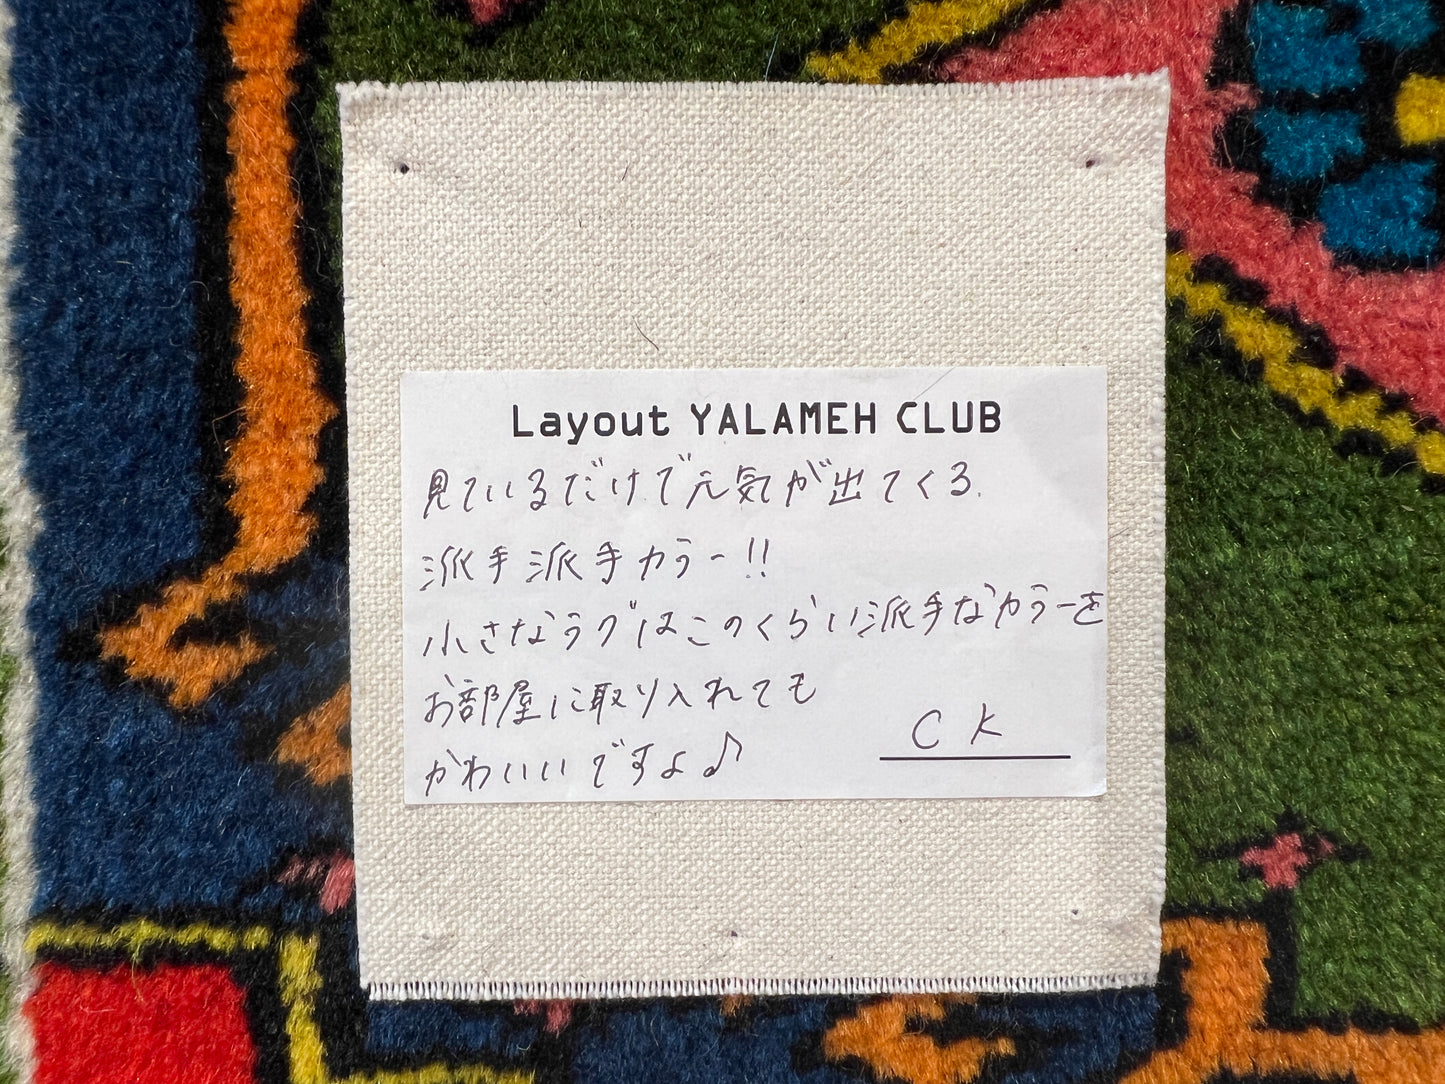 Layout YALAMEH CLUB
見ているだけで元気が出てくる.
派手派手カラー!!
小さなラグはこのくらい派手なカラーを
お部屋に取り入れても
かわいいですよ♪
CK